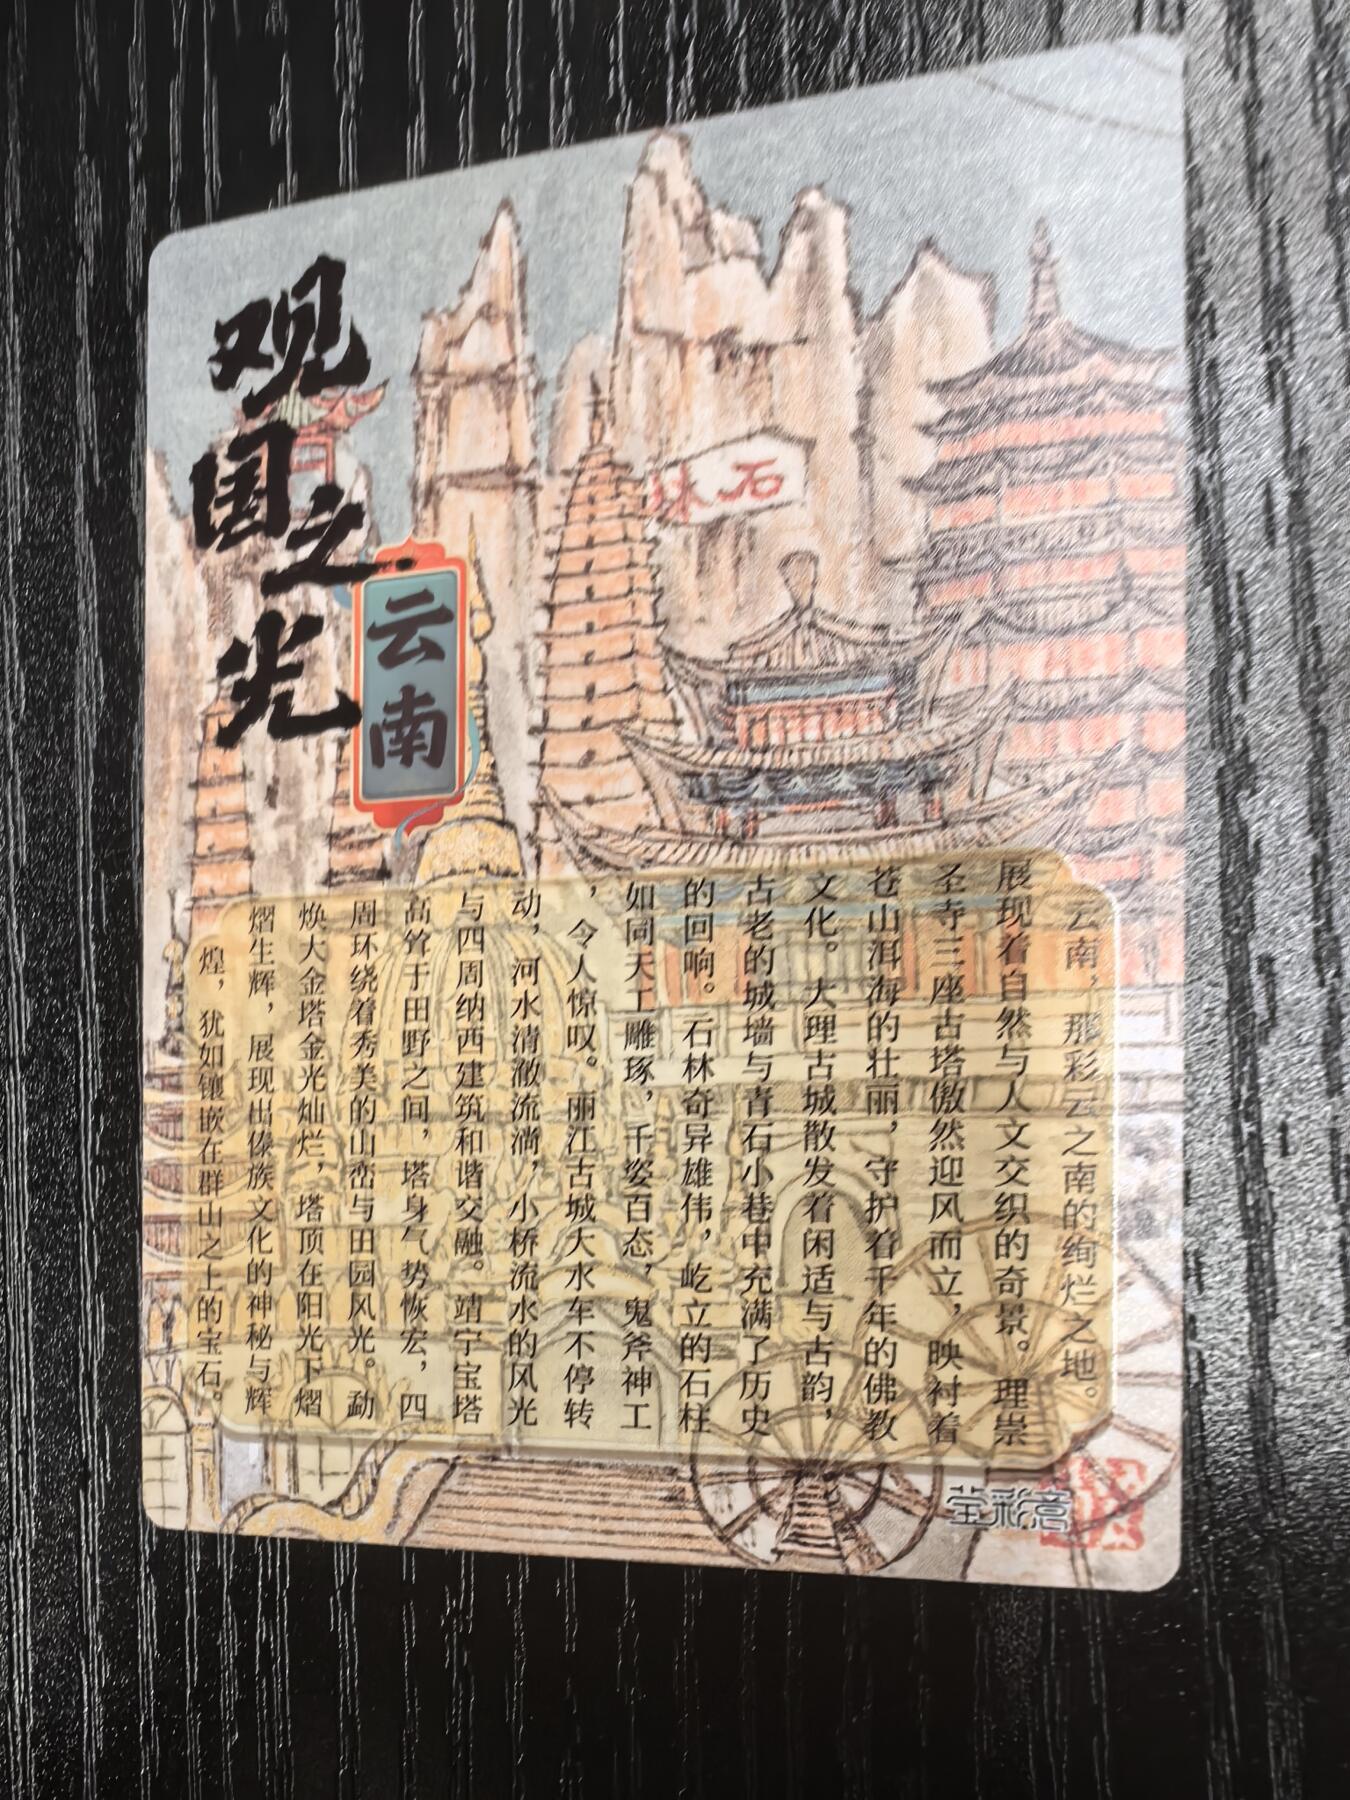 观国之光
云南
石林
云南，那彩云之南的绚烂之地。
展现着自然与人文交织的奇景。理崇
圣寺三座古塔傲然迎风而立，映衬着
苍山洱海的壮丽，守护着千年的佛教
文化。大理古城散发着闲适与古韵，
古老的城墙与青石小巷中充满了历史
的回响。石林奇异雄伟，屹立的石柱
如同天工雕琢，千姿百态，鬼斧神工
，令人惊叹。丽江古城大水车不停转
动，河水清澈流淌，小桥流水的风光
与四周纳西建筑和谐交融。靖宁宝塔
高耸于田野之间，塔身气势恢宏，四
周环绕着秀美的山峦与田园风光。勐
焕大金塔金光灿烂，塔顶在阳光下熠
熠生辉，展现出傣族文化的神秘与辉
煌，犹如镶嵌在群山之上的宝石。